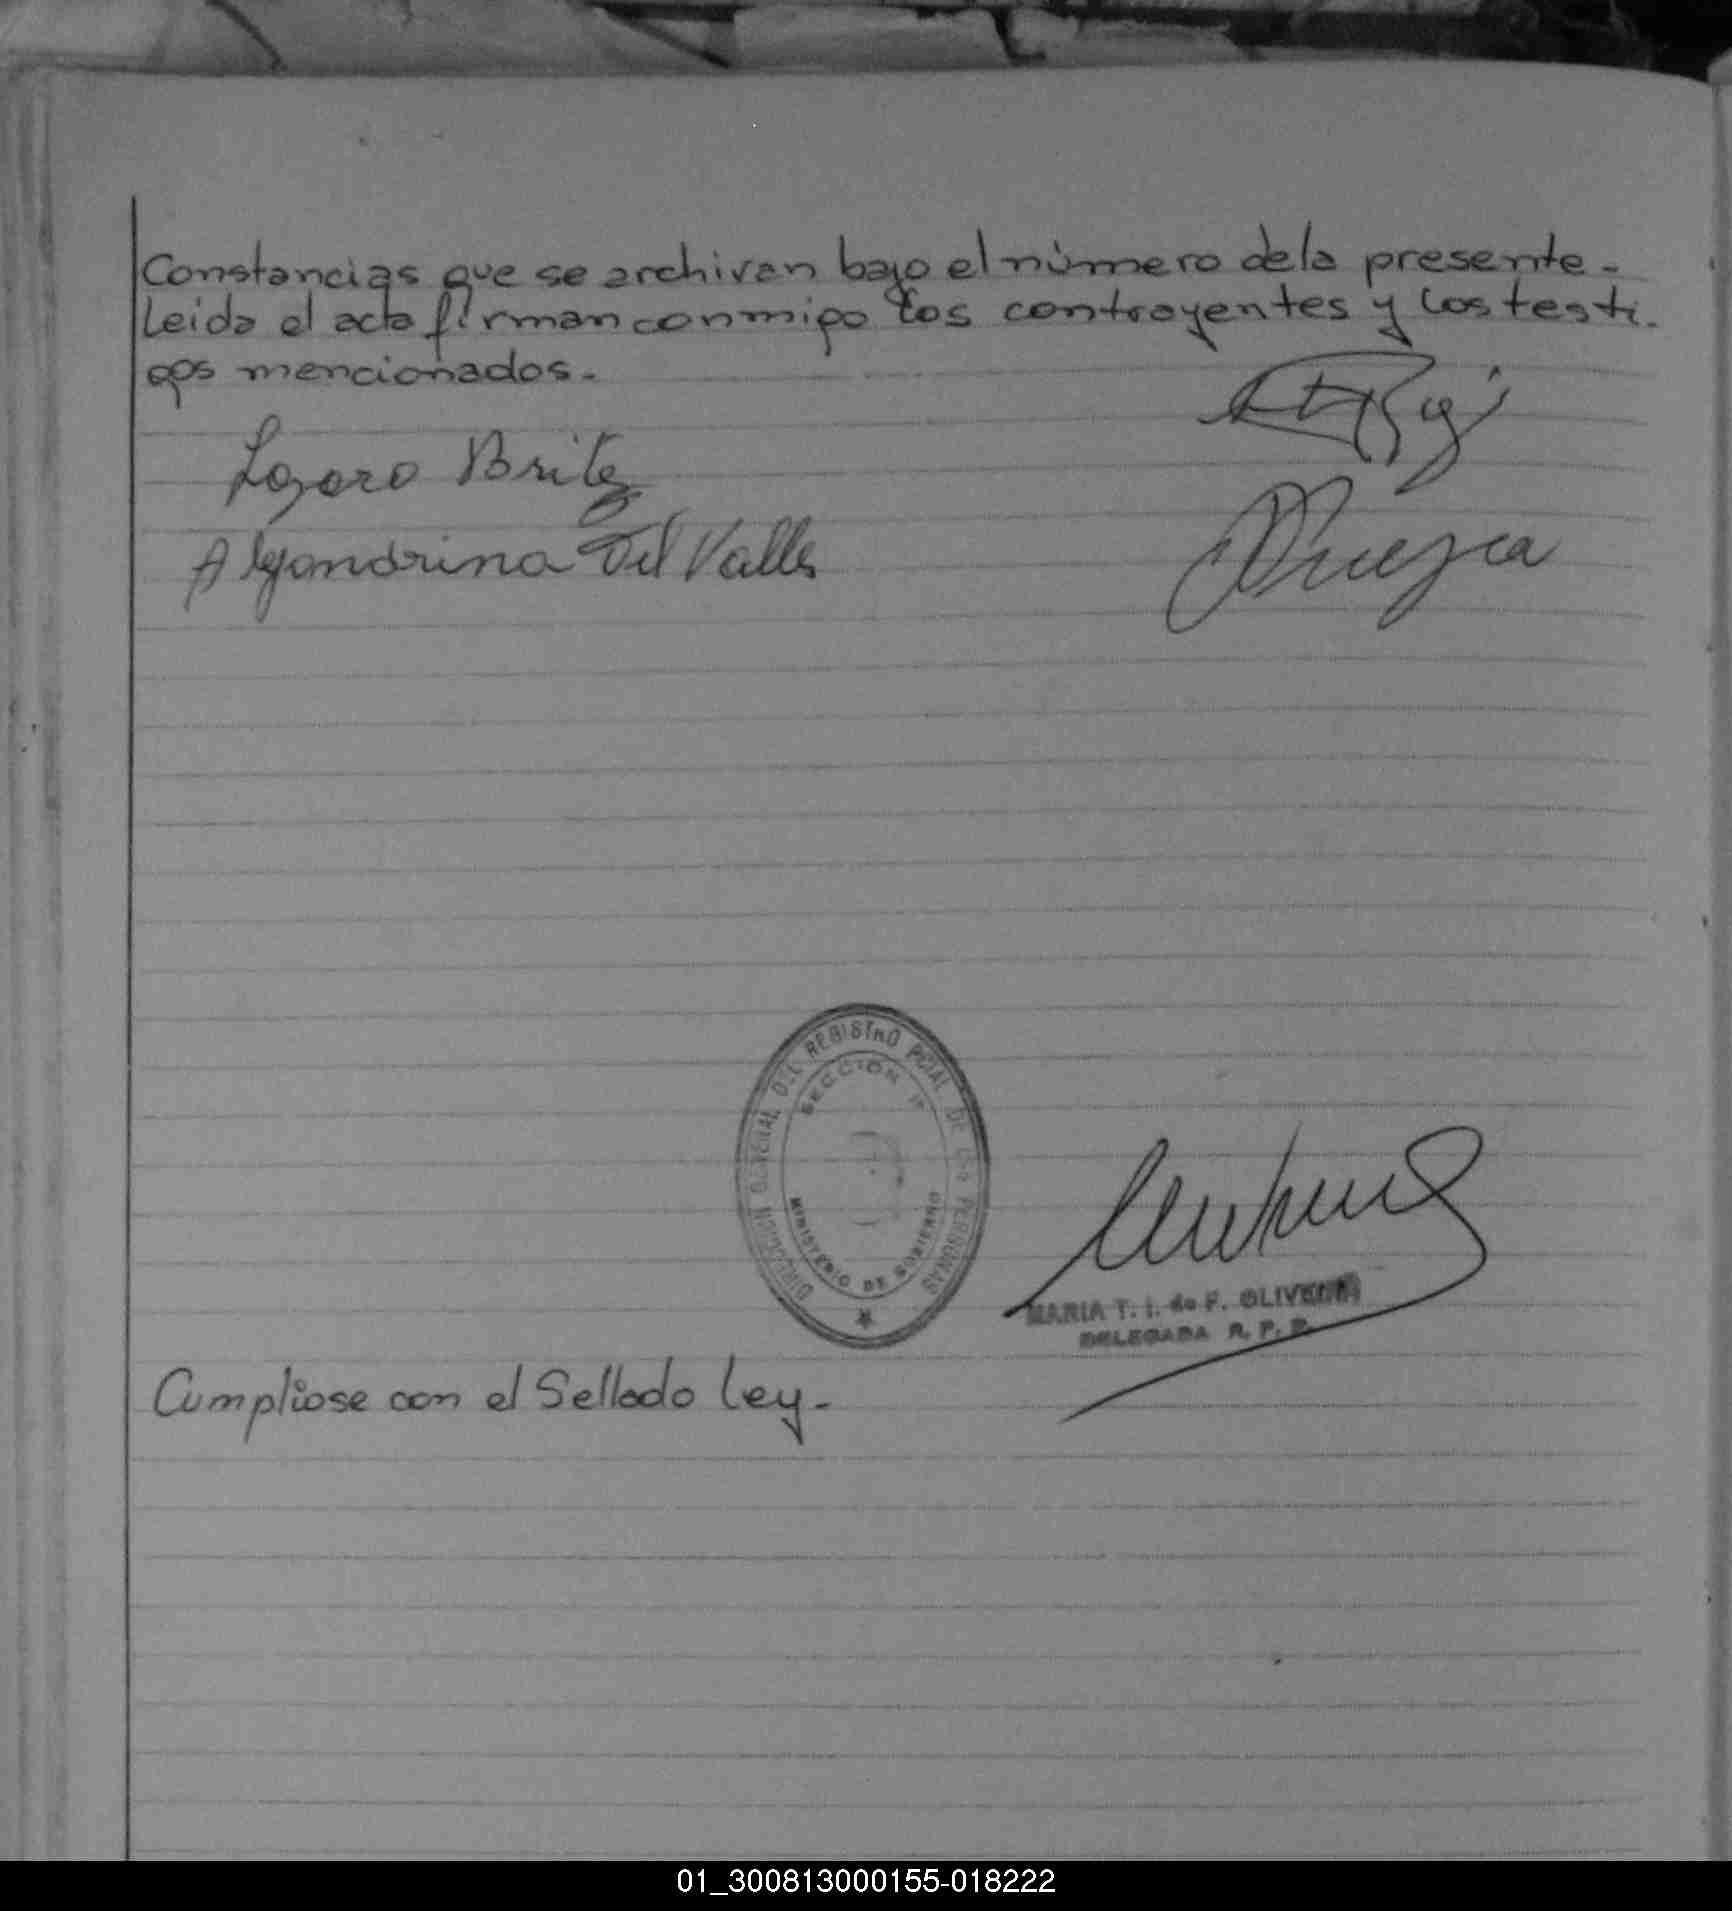 Constancias que se archivan bajo el número de la presente.-
Leida el acta firman conmigo los contrayentes y los testi-
gos mencionados.-
Lazaro Britez
Alejandrina Del Valle
DIRECCION GENERAL DEL REGISTRO PCIAL DE LAS PERSONAS
SECCION 1ª
MINISTERIO DE GOBIERNO
MARIA T. I. de F. OLIVERA
DELEGADA R. P. P.
Cumpliose con el Sellado Ley.-
01_300813000155-018222